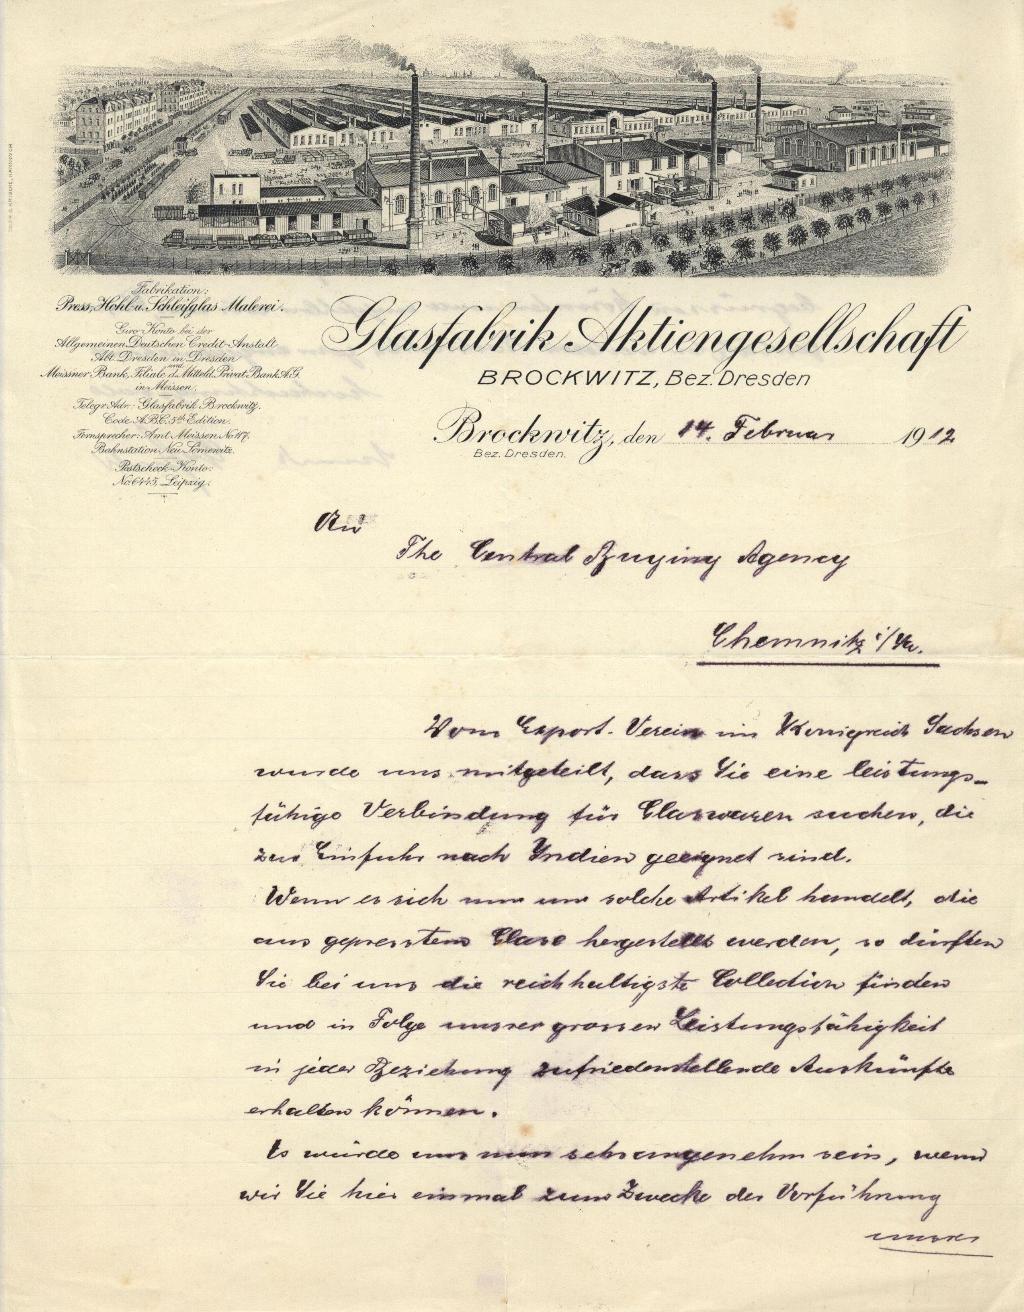 Fabrikation:
Press-, Hohl- u. Schleifglas Malerei.
Giro-Konto bei der
Allgemeinen Deutschen Credit-Anstalt
Abt. Dresden in Dresden
und
Meissner Bank, Filiale d. Mitteld. Privat-Bank A.G.
in Meissen.
Telegr. Adr.: Glasfabrik Brockwitz.
Code A.B.C. 5th Edition.
Fernsprecher: Amt Meissen No. 117.
Bahnstation Neu Sörnewitz.
Postscheck-Konto:
No. 6445, Leipzig.
Glasfabrik Aktiengesellschaft
BROCKWITZ, Bez. Dresden
Brockwitz, den 14. Februar 1912
Bez. Dresden.
An
The Central Buying Agency
Chemnitz i/Sa.
Vom Export-Verein im Königreich Sachsen
wurde uns mitgeteilt, dass Sie eine leistungs-
fähige Verbindung für Glaswaren suchen, die
zur Einfuhr nach Indien geeignet sind.
Wenn es sich nun um solche Artikel handelt, die
aus gepresstem Glase hergestellt werden, so dürften
Sie bei uns die reichhaltigste Collection finden
und in Folge unsrer grossen Leistungsfähigkeit
in jeder Beziehung zufriedenstellende Auskünfte
erhalten können.
Es würde uns nun sehr angenehm sein, wenn
wir Sie hier einmal zum Zwecke der Vorführung
unsres